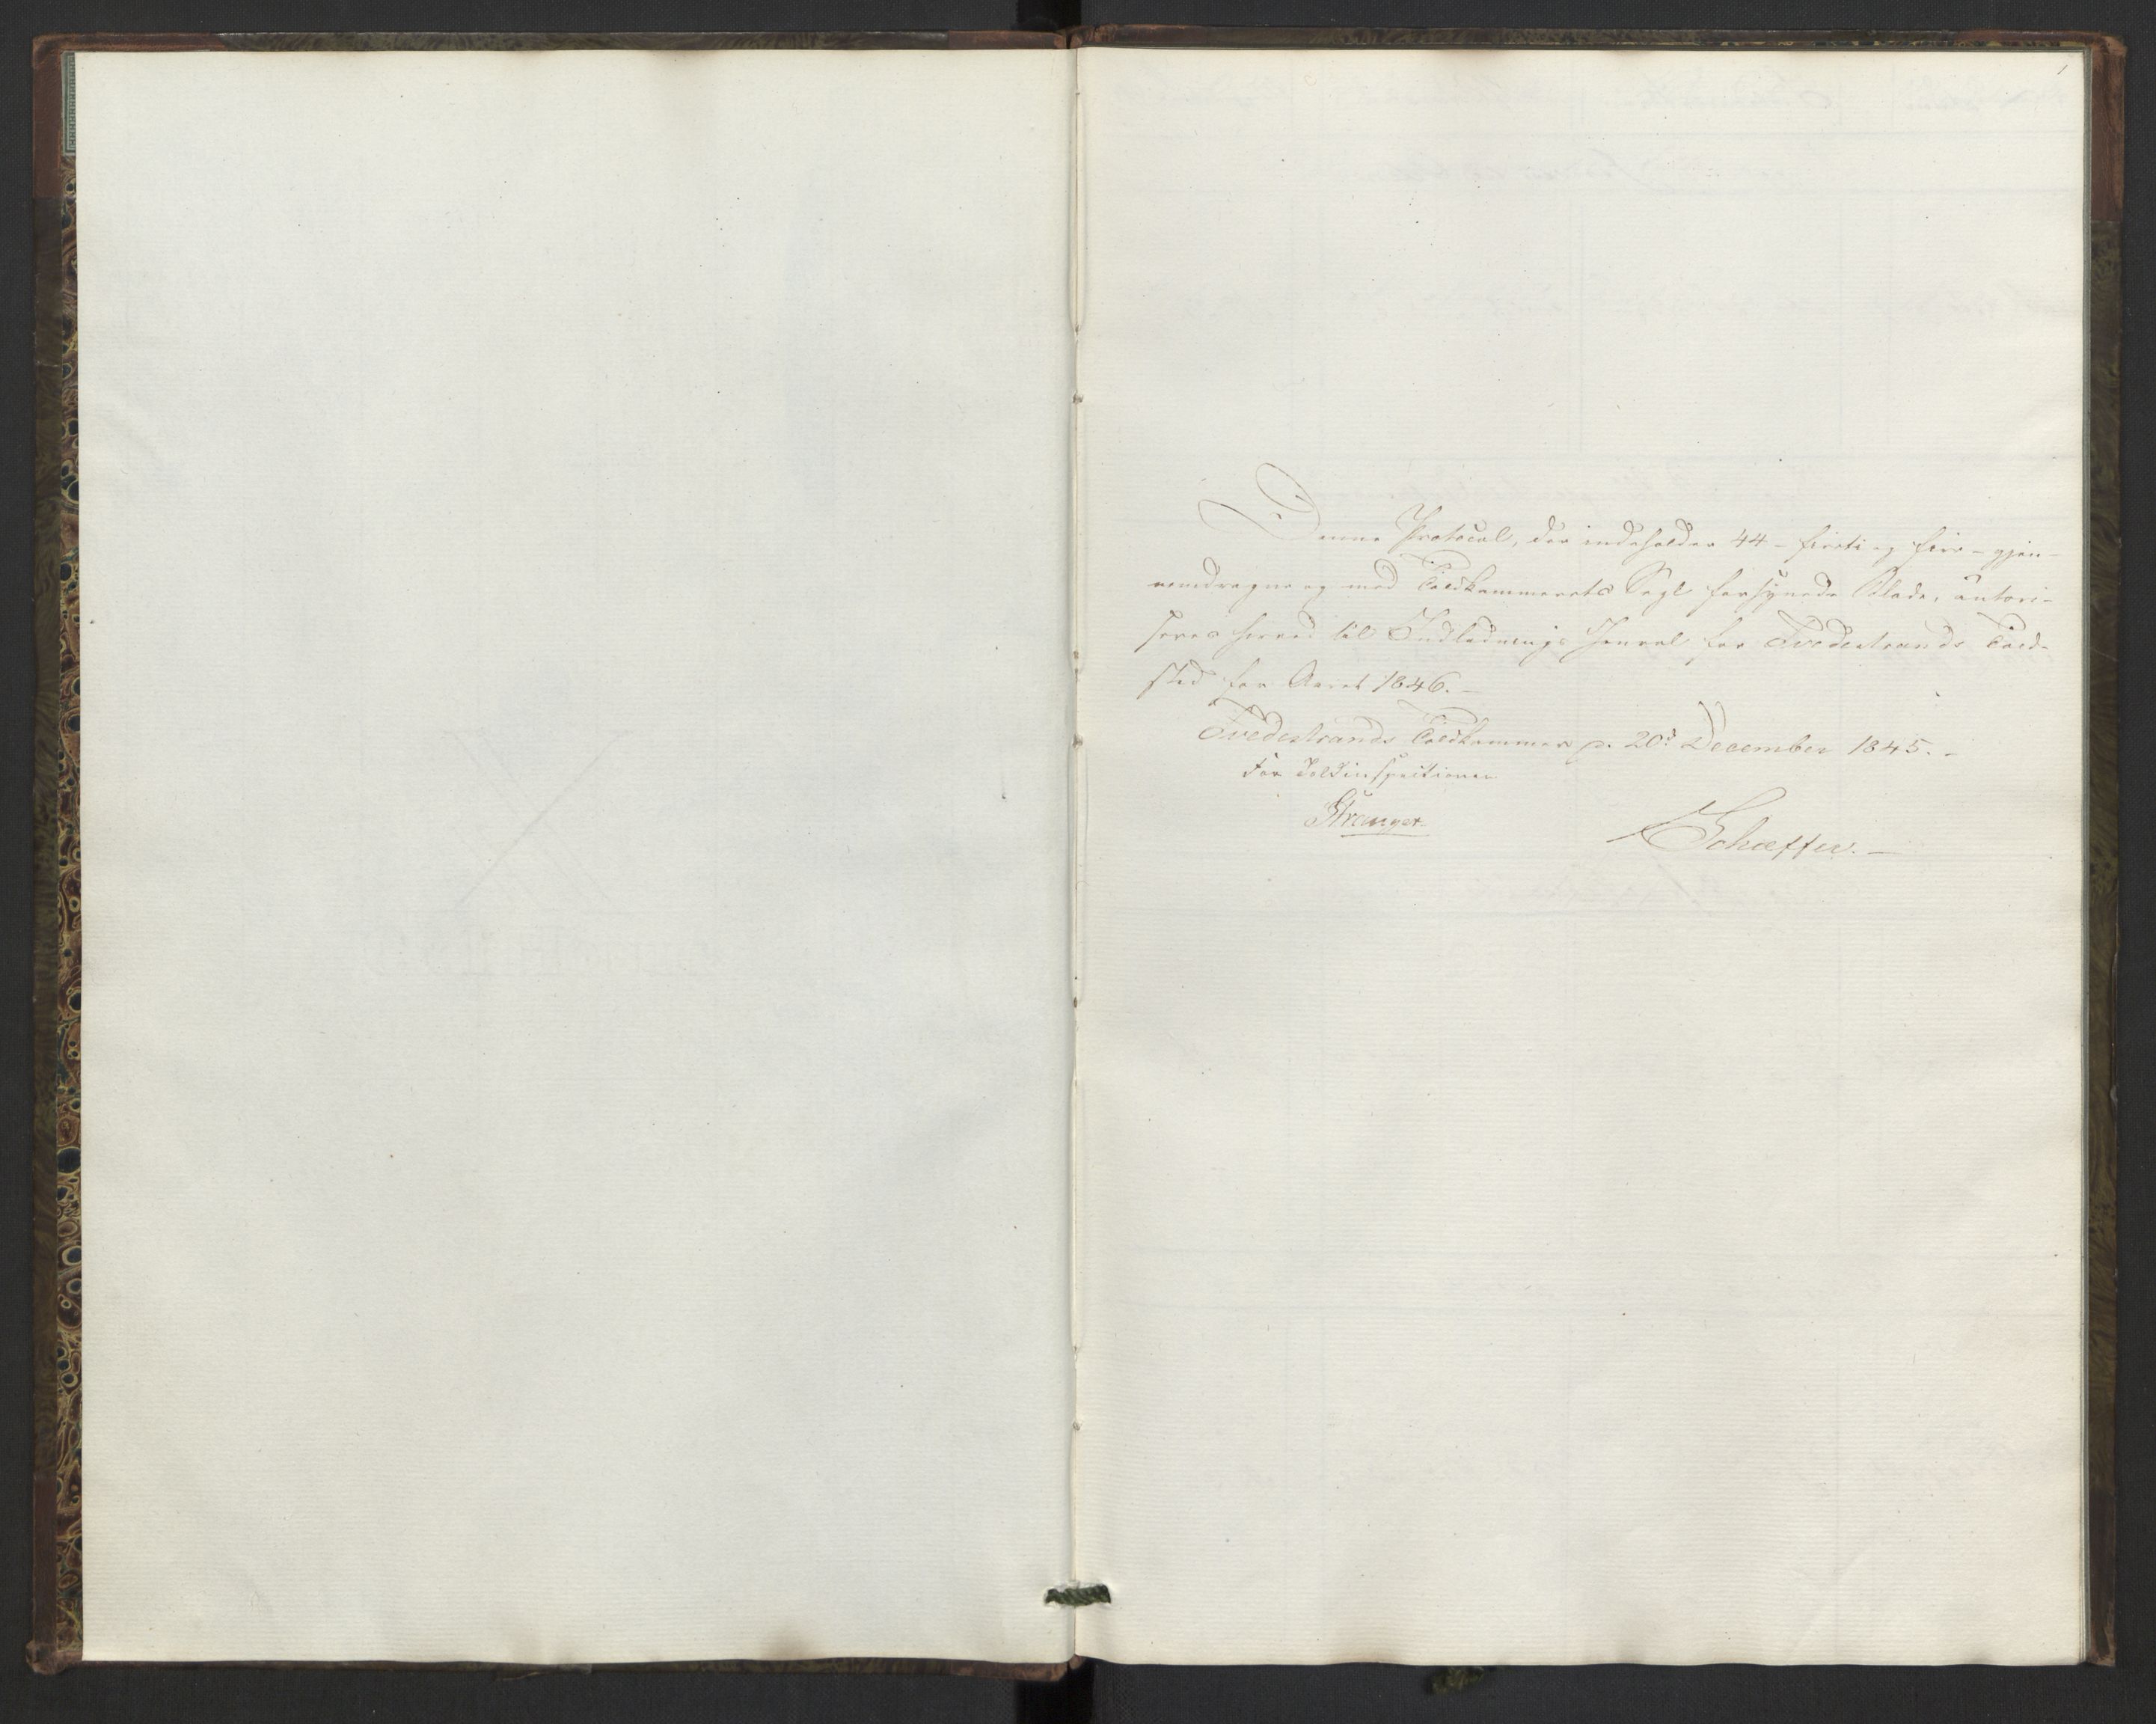 1
Denne Protocol, der indeholder 44 - firti og fire - gjen-
nemdragne og med Toldkammerets Segl forsynede Blade, autori-
seres herved til Indlednings Journal for Tvedestrands Told-
sted for Aaret 1846. -
Tvedestrands Toldkammer d. 20d December 1845. -
For Toldinspectionen
Stranger
Schæffer. -